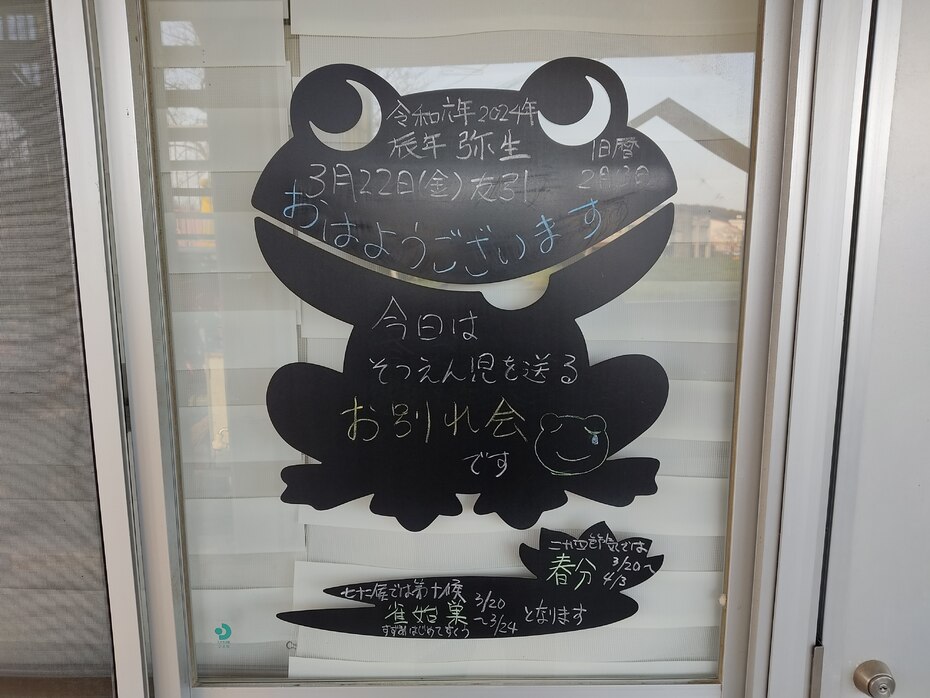 令和六年2024年
辰年 弥生
旧暦
3月22日(金)友引
2月13日
おはようございます
今日は
そつえん児を送る
お別れ会
です
二十四節気では
春分 3/20〜
4/3
七十二候では第十候
雀始巣 3/20
〜3/24
すずめはじめてすくう
となります